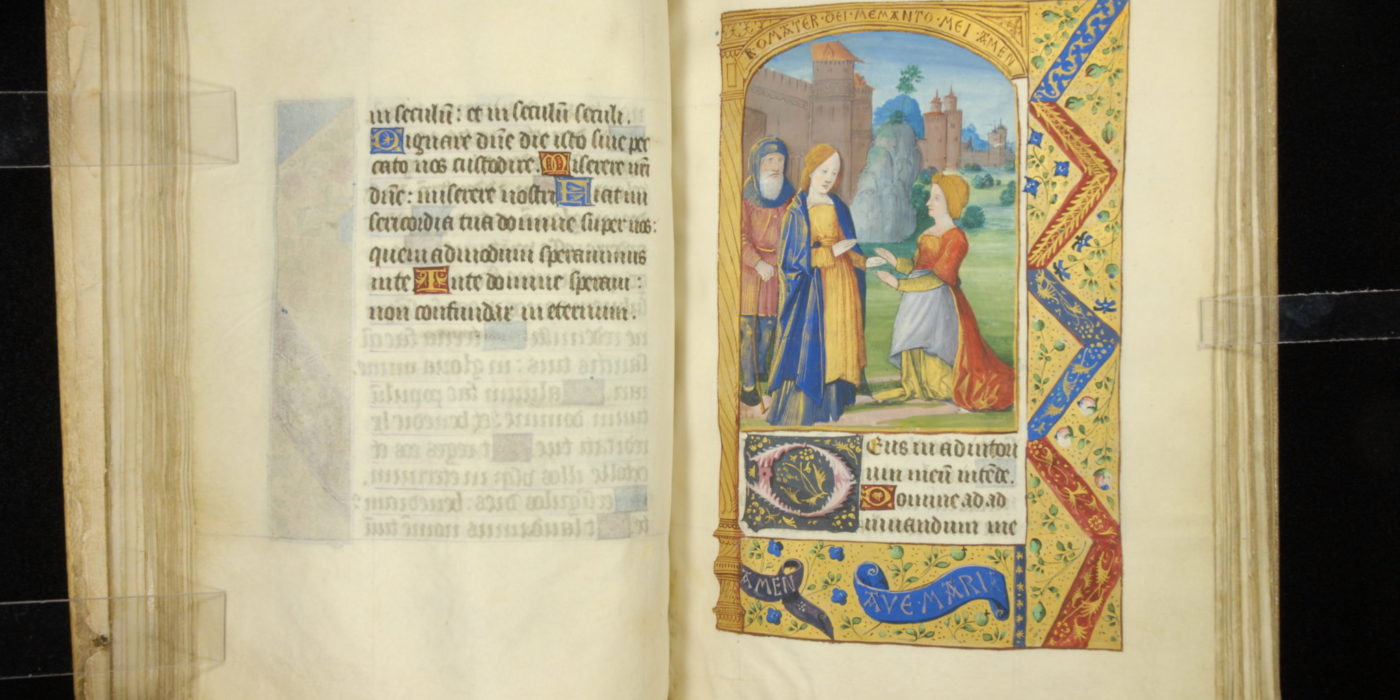 in seculū: et in seculū seculi.
Dignare dn̄e die isto sine pec
cato nos custodire. Miserere nr̄i
dn̄e: miserere nostri Fiat mi
sericordia tua domine super nos:
quem admodum sperauimus
in te In te domine speraui:
non confundar in eternum.
O MATER · DEI · MEMANTO · MEI · AMEN
Deus in adiutori
um meū intēde.
Domine ad ad
iuuandum me
AMEN
AVE · MARIA